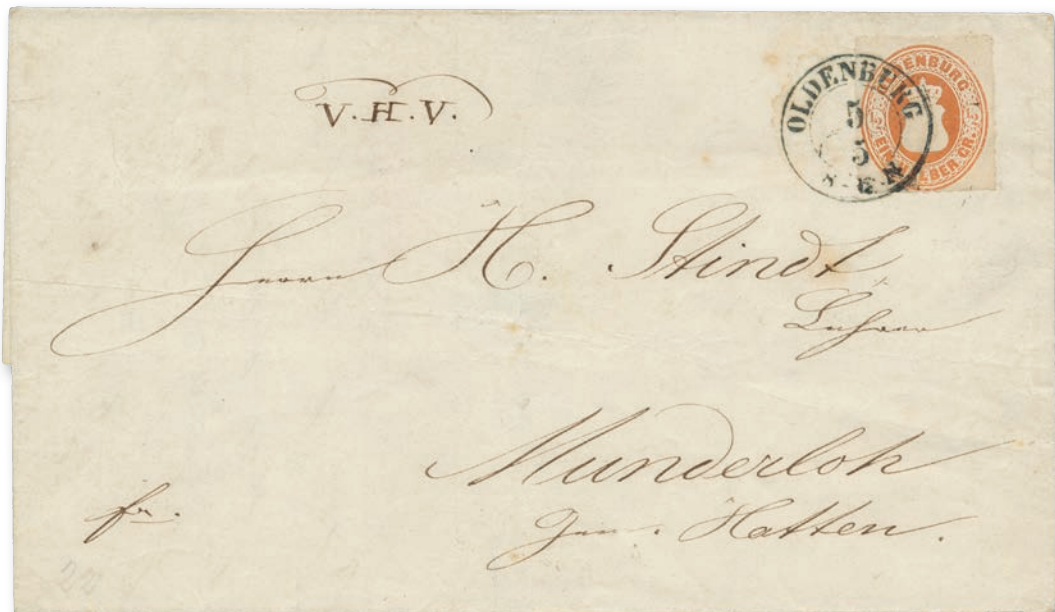 V. H. V.
OLDENBURG
5
5
OLDENBURG
EIN HALBER GR.
Herrn H. Stindt
Lehrer
Munderloh
Hatten.
fr.
22